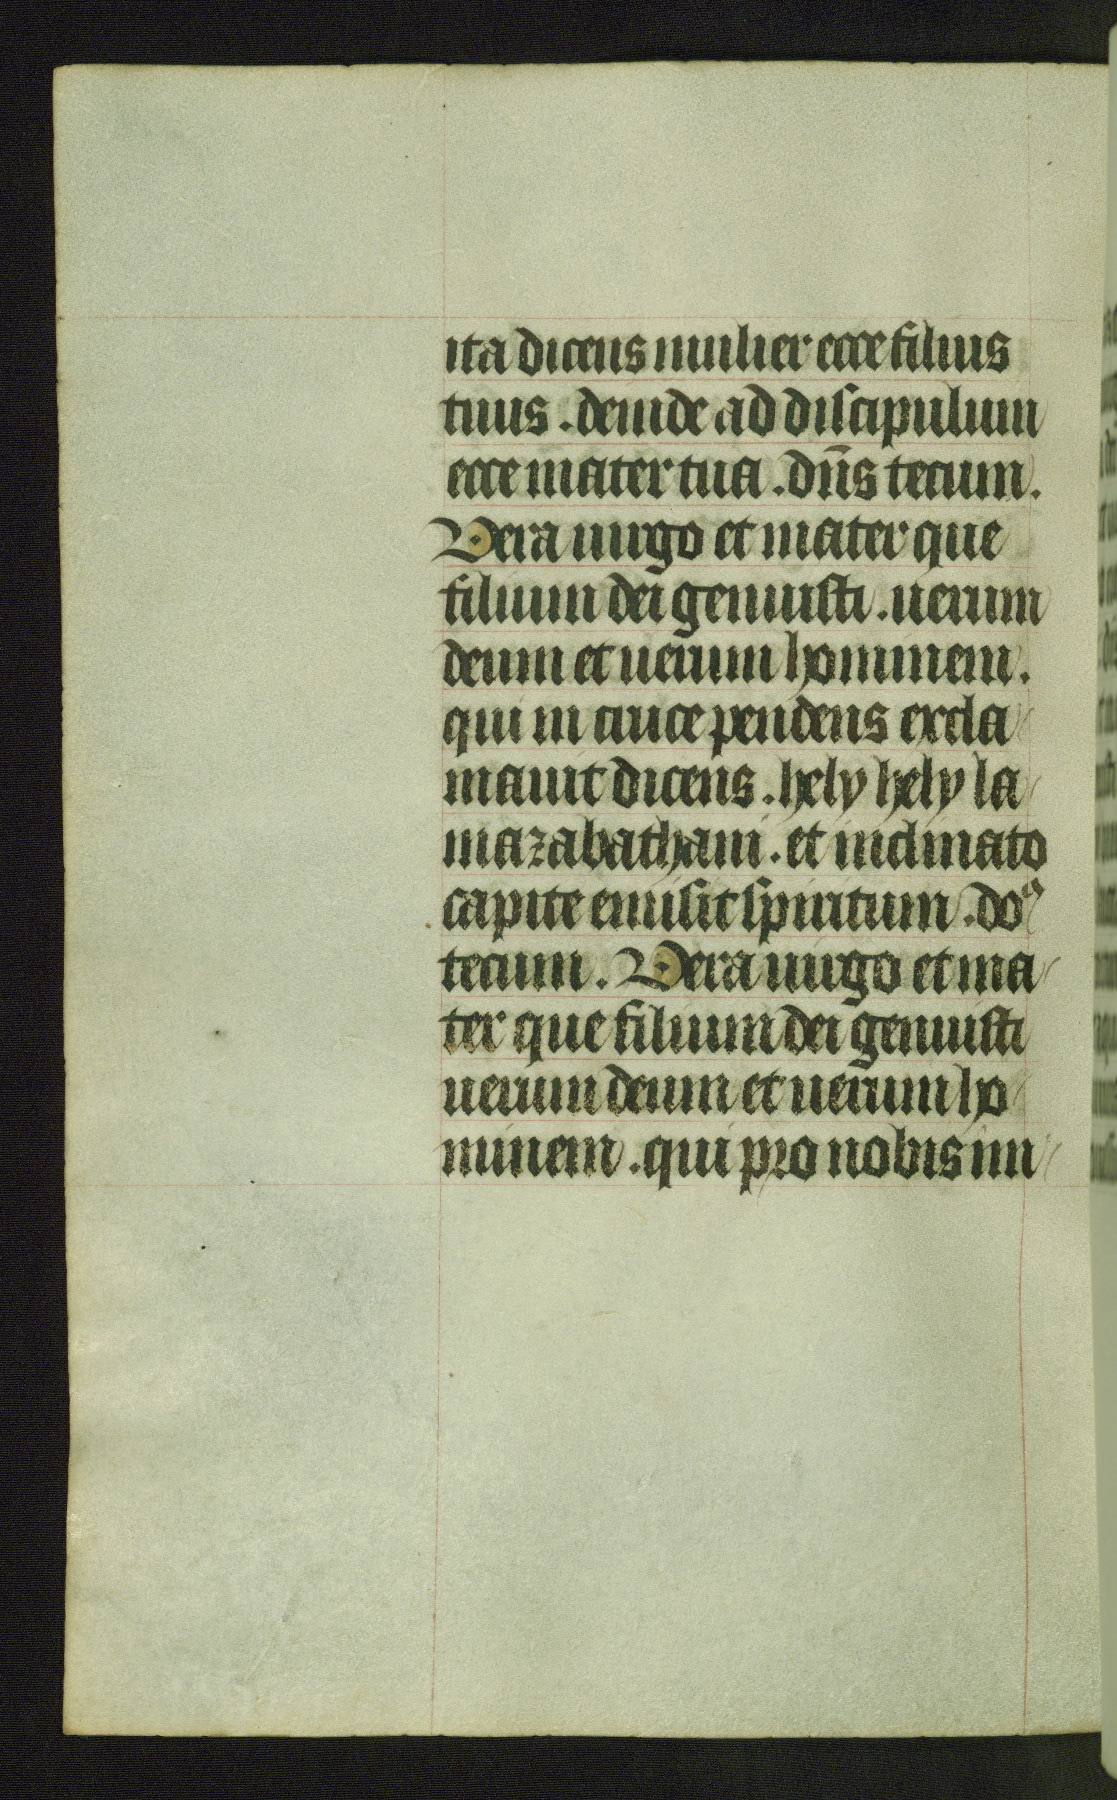 ita dicens mulier ecce filius
tuus . deinde ad discipulum
ecce mater tua . dñs tecum .
Vera uirgo et mater que
filium dei genuisti . uerum
deum et uerum hominem .
qui in cruce pendens excla
mauit dicens . hely hely la
mazabathani . et inclinato
capite emisit spiritum . do⁹
tecum . Vera uirgo et ma
ter que filium dei genuisti
uerum deum et uerum ho
minem . qui pro nobis im